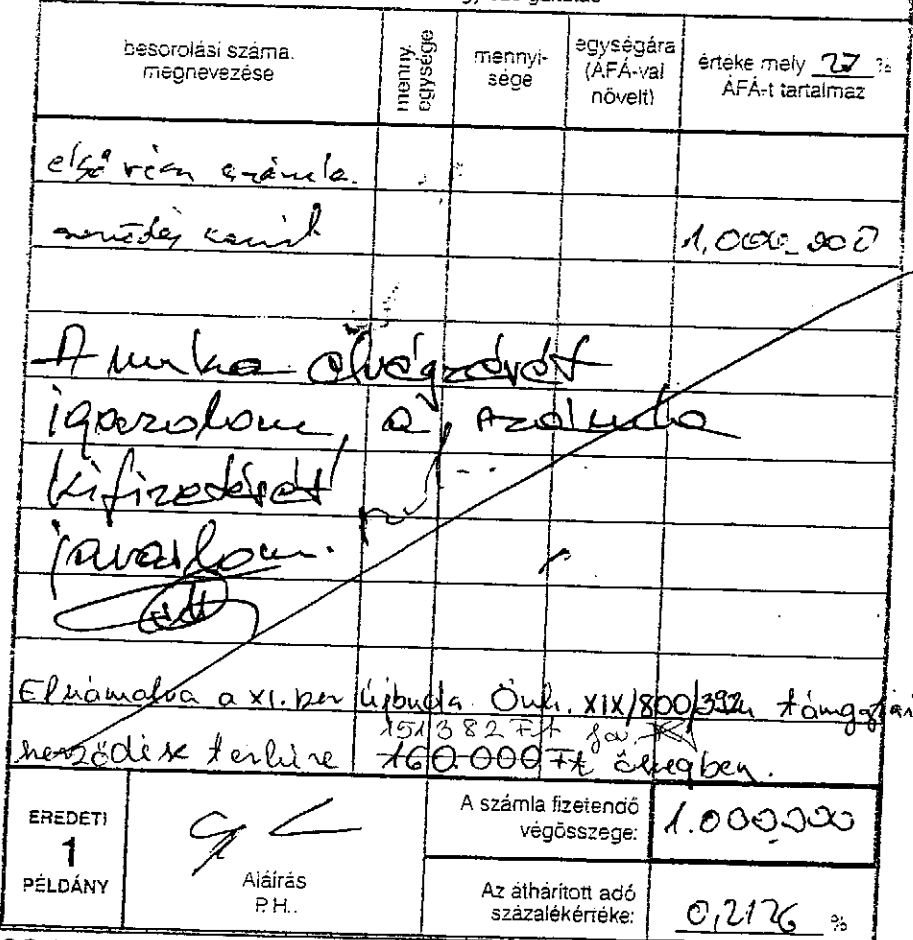 besorolási száma.
megnevezése
menny.
egysége
mennyi-
sége
egységára
(ÁFÁ-val
növelt)
értéke mely 27 %
ÁFÁ-t tartalmaz
első rész számla.
szerződés szerint
1.000.000
A munka elvégzését
igazolom, a számla
kifizetését
javaslom.
Elszámolva a XI. ker Újbuda Önk. XIX/800/ támogatási
151382 Ft jav.
szerződés terhére 160.000 Ft összegben.
EREDETI
1
PÉLDÁNY
Aláírás
P.H..
A számla fizetendő
végösszege:
1.000.000
Az áthárított adó
százalékértéke:
0,2126 %